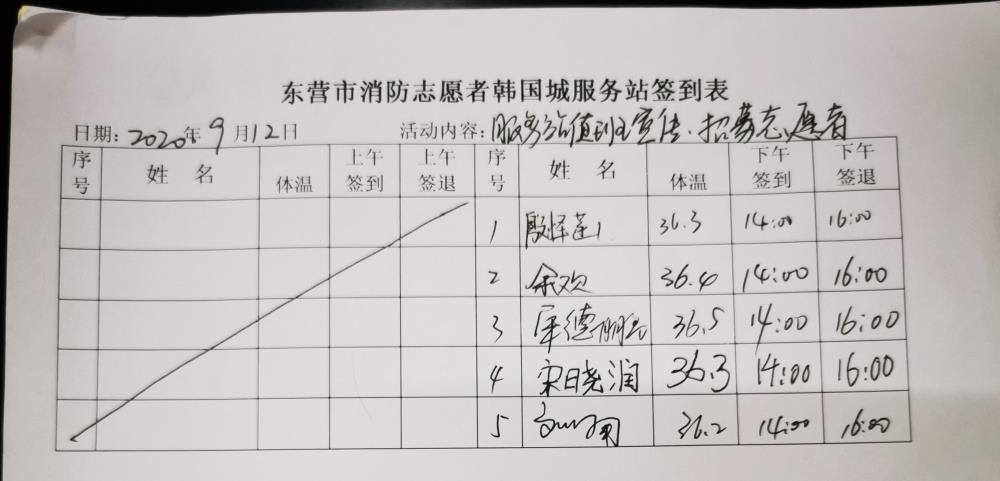 东营市消防志愿者韩国城服务站签到表
日期: 2020年9月12日 活动内容: 服务站值班、宣传、招募志愿者
序号 姓名 体温 上午签到 上午签退 序号 姓名 体温 下午签到 下午签退
1 36.3 14:00 16:00
2 余欢 36.4 14:00 16:00
3 36.5 14:00 16:00
4 宋晓润 36.3 14:00 16:00
5 36.2 14:00 16:00